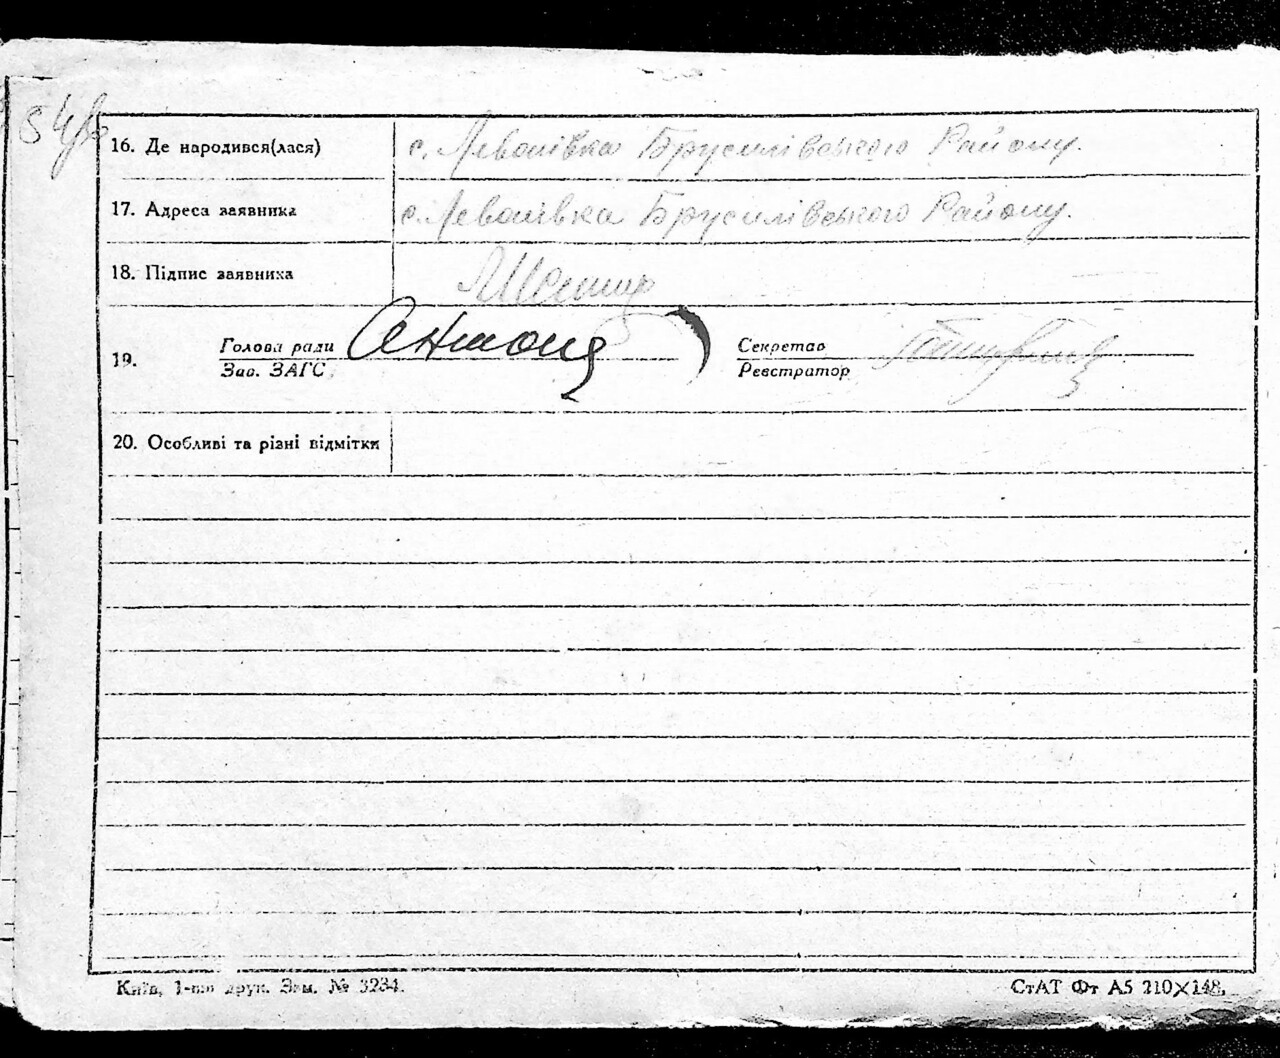 16. Де народився(лася) с. Леонівка Брусилівського Району.
17. Адреса заявника с. Леонівка Брусилівського Району.
18. Підпис заявника
Голова ради Секретар
19.
Зав. ЗАГС Реєстратор
20. Особливі та різні відмітки
Київ, 1-ша друк. Зам. № 3234. СтАТ Фт А5 210×148.